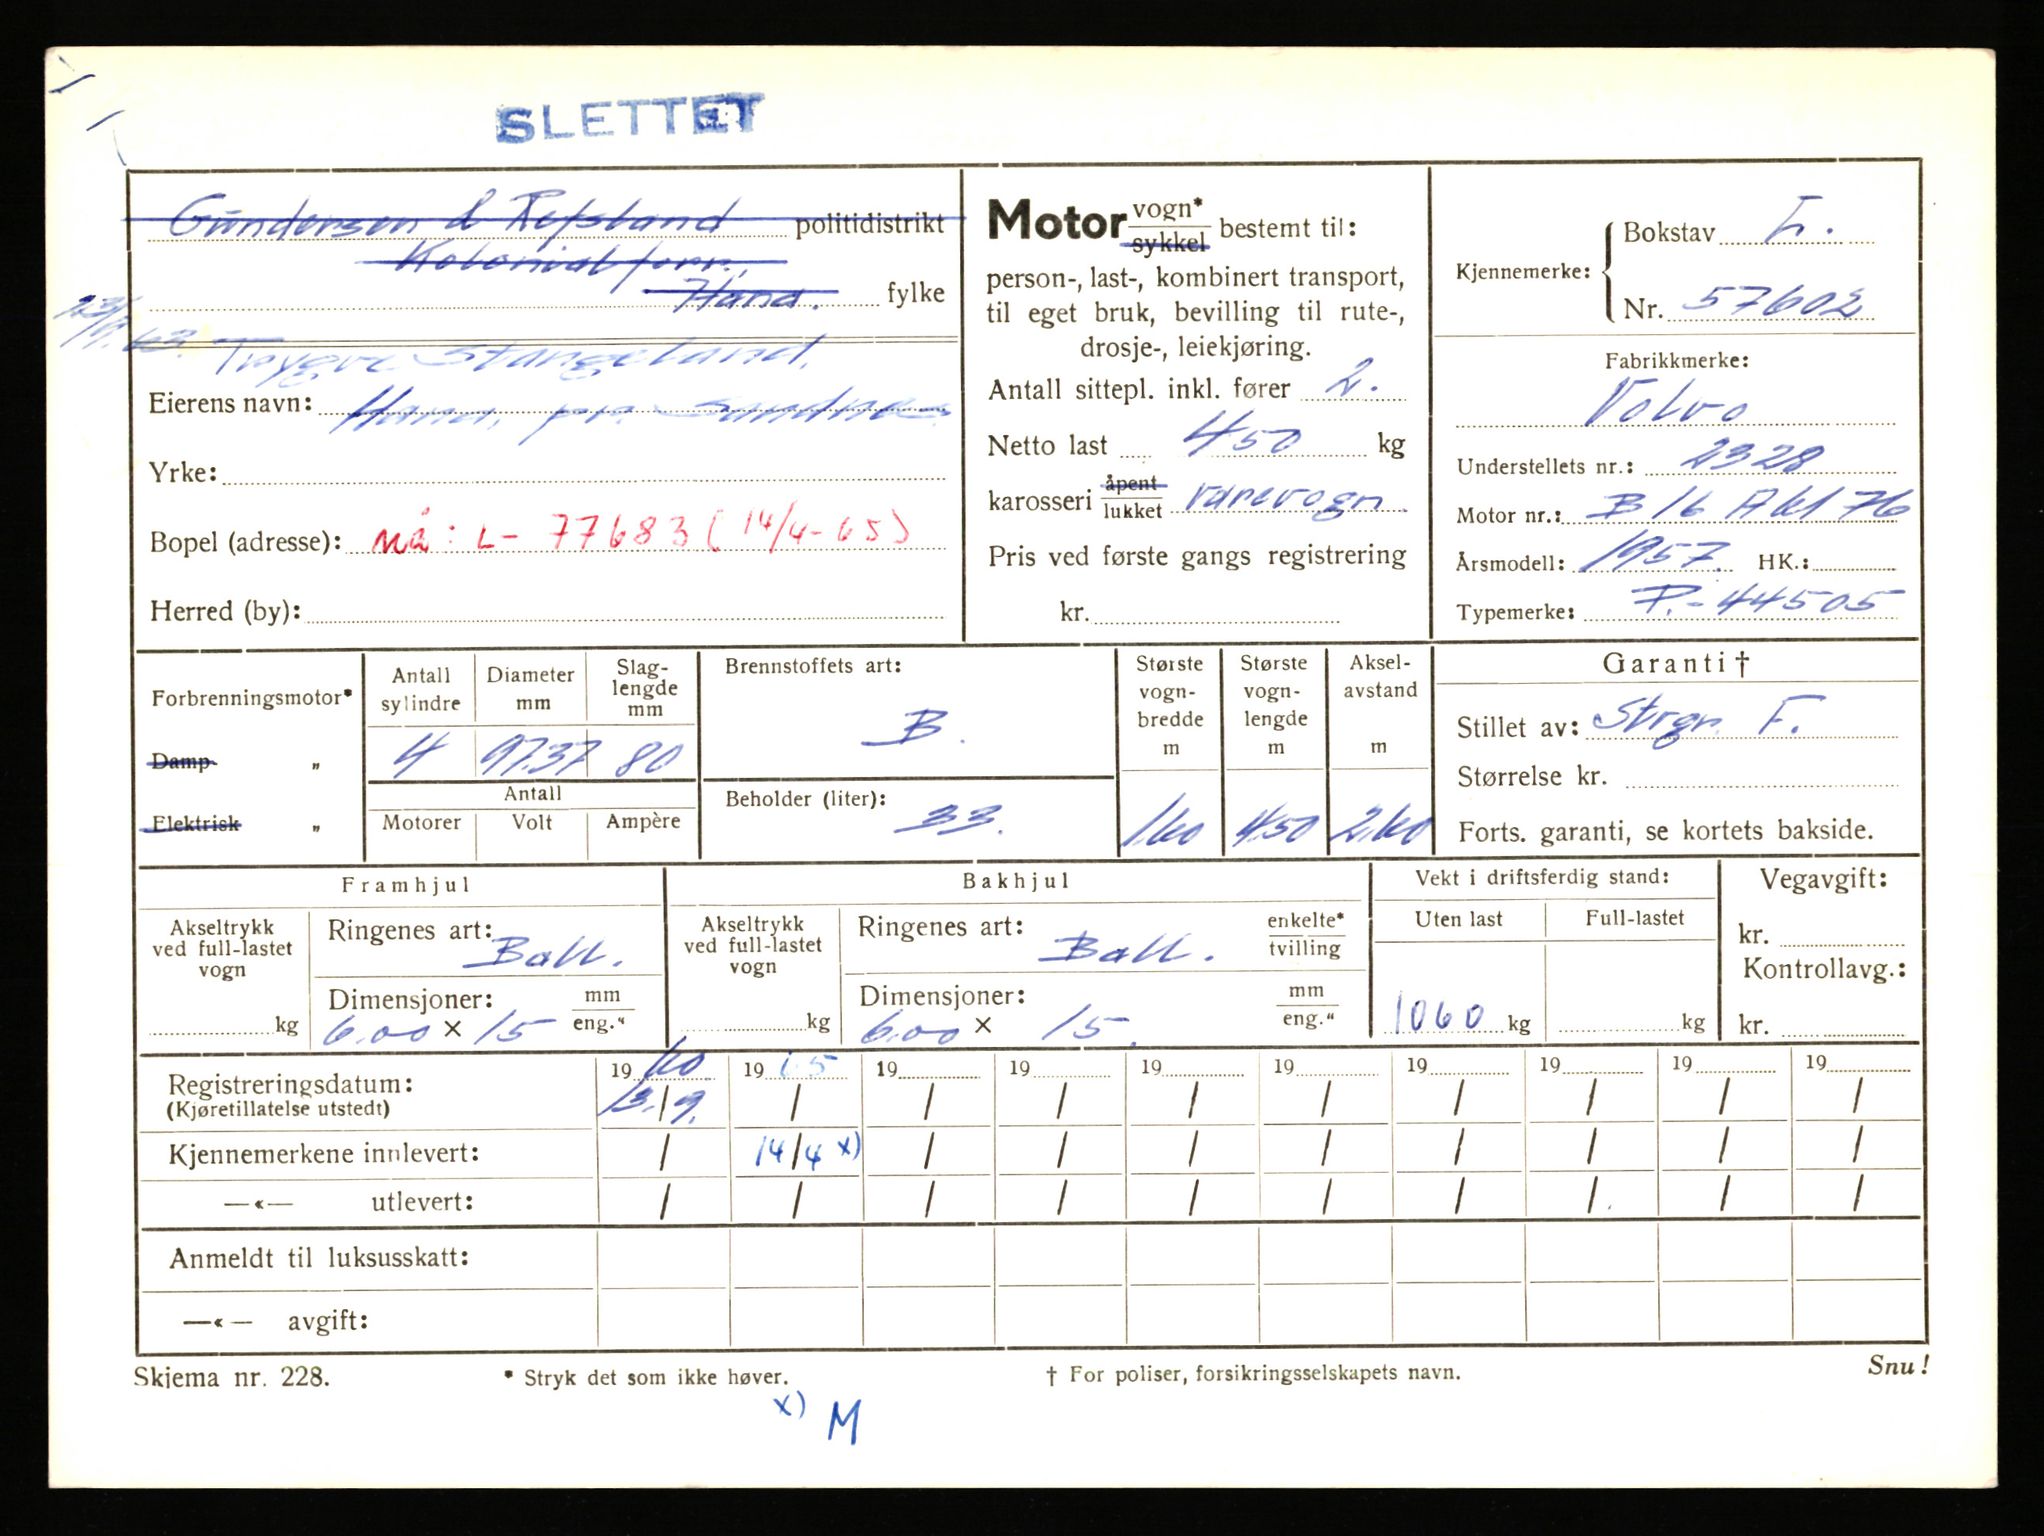 SLETTET
Gundersen & Refsland politidistrikt
Kolonialforr.
Hana. fylke
63. Trygve Stangeland.
Eierens navn: Hana, pr. Sandnes
Yrke:
Bopel (adresse): nå: L- 77683 (14/4-65)
Herred (by):
Motor vogn* sykkel bestemt til:
person-, last-, kombinert transport,
til eget bruk, bevilling til rute-,
drosje-, leiekjøring.
Antall sittepl. inkl. fører 2.
Netto last 450 kg
karosseri åpent lukket varevogn
Pris ved første gangs registrering
kr.
Kjennemerke: Bokstav L.
Nr. 57602
Fabrikkmerke:
Volvo
Understellets nr.: 2328
Motor nr.: B 16 A 6176
Årsmodell: 1957. HK.:
Typemerke: P.-44505
Forbrenningsmotor*
Damp „
Elektrisk „
Antall sylindre Diameter mm Slag-lengde mm
4 97.37 80
Antall
Motorer Volt Ampère
Brennstoffets art:
B.
Beholder (liter):
33.
Største vogn-bredde m Største vogn-lengde m Aksel-avstand m
1.60 4.50 2.60
Garanti †
Stillet av: Strgr. F.
Størrelse kr.
Forts. garanti, se kortets bakside.
Framhjul
Akseltrykk ved full-lastet vogn
kg
Ringenes art: Ball.
Dimensjoner: mm eng."
6.00 × 15
Bakhjul
Akseltrykk ved full-lastet vogn
kg
Ringenes art: Ball. enkelte* tvilling
Dimensjoner: mm eng."
6.00 × 15.
Vekt i driftsferdig stand:
Uten last Full-lastet
1060 kg kg
Vegavgift:
kr.
Kontrollavg.:
kr.
Registreringsdatum: 19 60 19 65 19 19 19 19 19 19 19 19
(Kjøretillatelse utstedt) 13./9. / / / / / / / / /
Kjennemerkene innlevert: / 14/4 x) / / / / / / / /
—«— utlevert: / / / / / / / / / /
Anmeldt til luksusskatt:
—«— avgift:
Skjema nr. 228. * Stryk det som ikke høver. † For poliser, forsikringsselskapets navn. Snu!
x) M